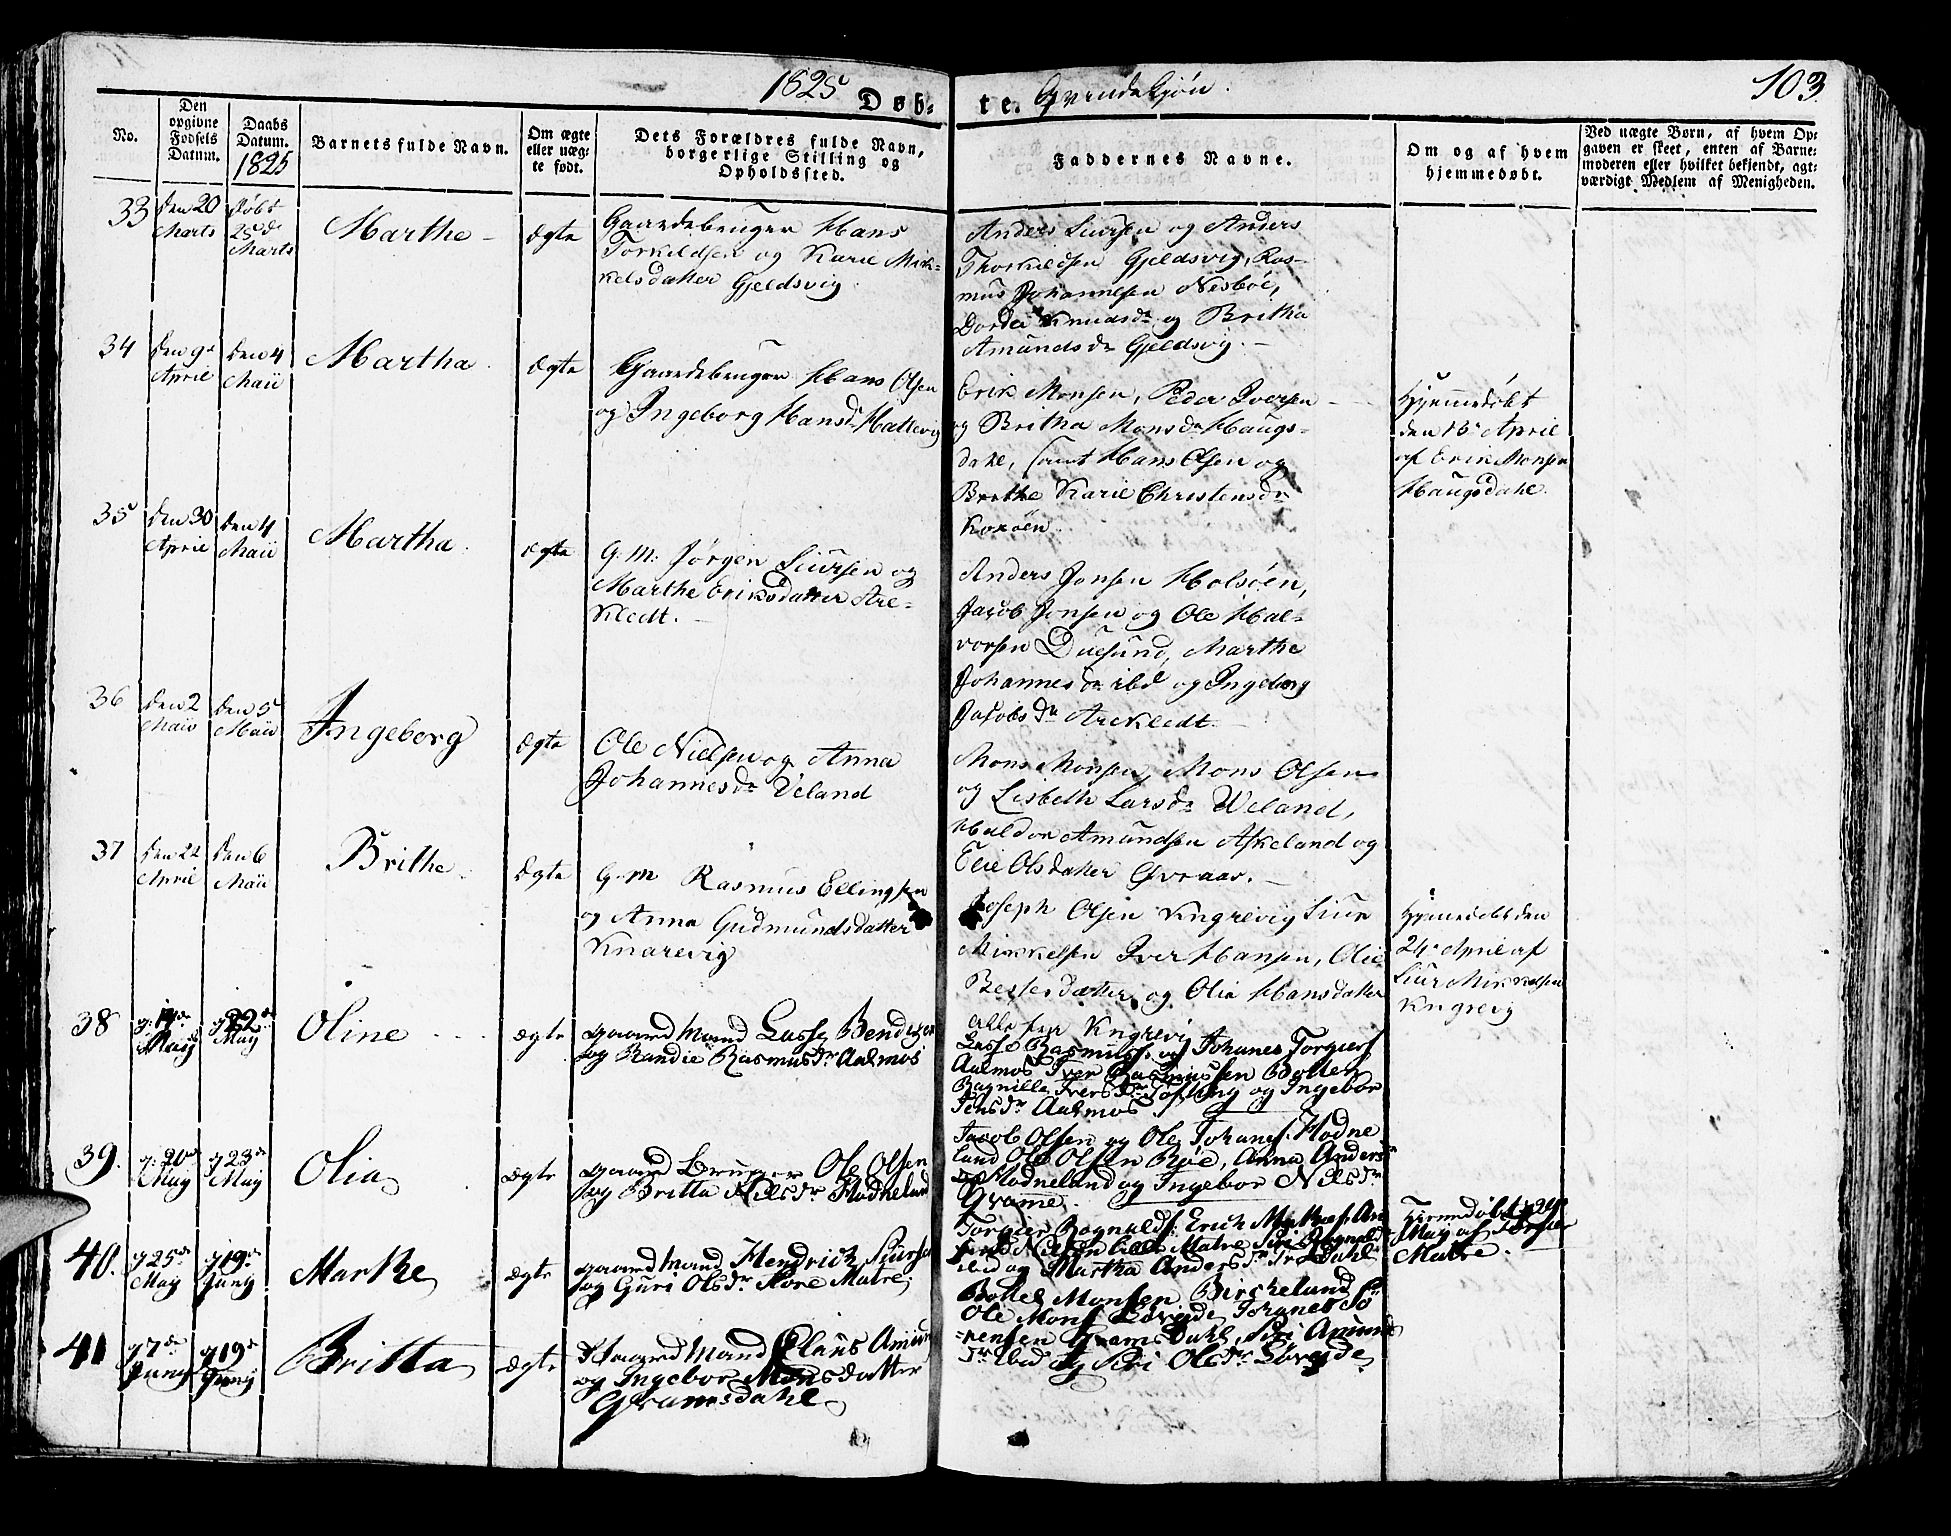 1825 Døb- te. Qvindekjøn. 103.
No.
Den opgivne Fødsels Datum.
Daabs Datum. 1825
Barnets fulde Navn.
Om ægte eller uægte født.
Dets Forældres fulde Navn, borgerlige Stilling og Opholdssted.
Faddernes Navne.
Om og af hvem hjemmedøbt.
Ved uægte Børn, af hvem Opgaven er skeet, enten af Barnemoderen eller hvilket bekjendt, agtværdigt Medlem af Menigheden.
33
den 20 Marts
døbt 25de Marts
Marthe
Ægte
Gaardebruger Hans
Torkildsen og Karie Mik-
kelsdatter Gjeldsvig
Anders Siursen og Anders
Thorkildsen Gjeldsvig, Ras-
mus Johannesen Nesbøe,
Dordei Knudsdr og Britha
Amundsdr Gjeldsvig.
34
den 9d April
den 4 Maii
Martha
Ægte
Gaardebruger Hans Olsen
og Ingeborg Hansdr Hattevig
Erik Monsen, Peder Iversen
og Britha Monsdr Haugs-
dahl, samt Hans Olsen og
Brithe Karie Christensdr
Hjemmedøbt
den 13 April
af Erik Monsen
Haugsdahl.
35
den 30 April
den 4 Maii
Martha
Ægte
G: M: Jørgen Siursen og
Marthe Eriksdatter Are-
kledt.
Anders Jonsen Holsøen,
Jacob Jonsen og Ole Hal-
vorsen Duesund, Marthe
Johannesdr ibd og Ingeborg
Jacobsdr Arekledt.
36
den 2 Maii
den 5 Maii
Ingeborg
Ægte
Ole Nielsen og Anna
Johannesdr Veland
Mons Monsen, Mons Olsen
og Lisbeth Larsdr Weland,
Haldor Amundsen Askeland og
Elie Olsdatter Qvraas.
37
den 22 April
den 6 Maii
Brithe
Ægte
G. M Rasmus Ellingsen
og Anna Gudmundsdatter
Knarevig
Joseph Olsen Kngrevig Siur
Mikkelsen Iver Hansen, Olie
Bessesdatter og Olia Hansdatter
alle fra Kngrevig
Hjemedøbt den
24 April af
Siur Mikkelsen
Kngrevig
38
May
22de May
Oline
ægte
gaard mand Lasse Bendixen
og Randie Rasmusdr Aalmos
Lasse Rasmuss. og Johanes Torgiers
Aalmos Iver Rasmussen Botten
Ragnille Iversdr og Ingebor
Jensdr Aalmos
39.
20de May
23de May
Olia
ægte
gaard Bruger Ole Olsen
og Britta Nilsdr Hodneland
Jacob Olsen og Ole Johanes. Hodne
land Ole Olsen Røe, Anna Anders
dr Hodneland og Ingebor Nilsdr
40.
25de May
19de Juny
Marthe
ægte
gaard mand Hendrich Siursen
og Guri Olsdr Store Matre,
Torgier Ragnalds. Erich
Matre Siri Ragnald
ibid og Martha Andersdr
May af Torgier
Matre.
41
7de Juny
19de Juny
Britta
ægte
gaard mand Claus Amun
og Ingebor Monsdatter
Qvamsdahl,
Bottel Monsen Birckeland
Ole Mons. Johanes Sø-
rensen Qvamsdahl, Siri Amunds
dr Ibid og Siri Olsdr